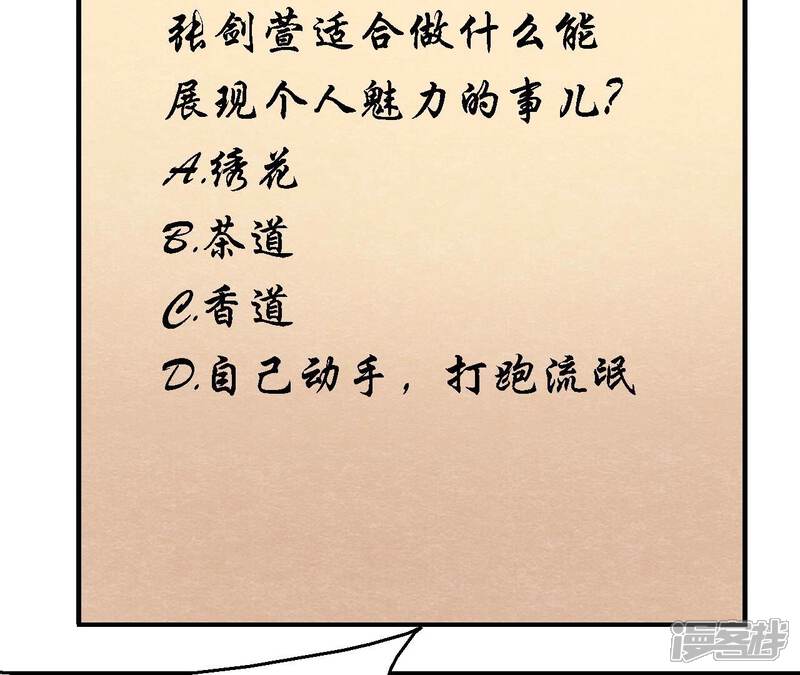 张剑萱适合做什么能
展现个人魅力的事儿?
A.绣花
B.茶道
C.香道
D.自己动手，打跑流氓
漫客栈